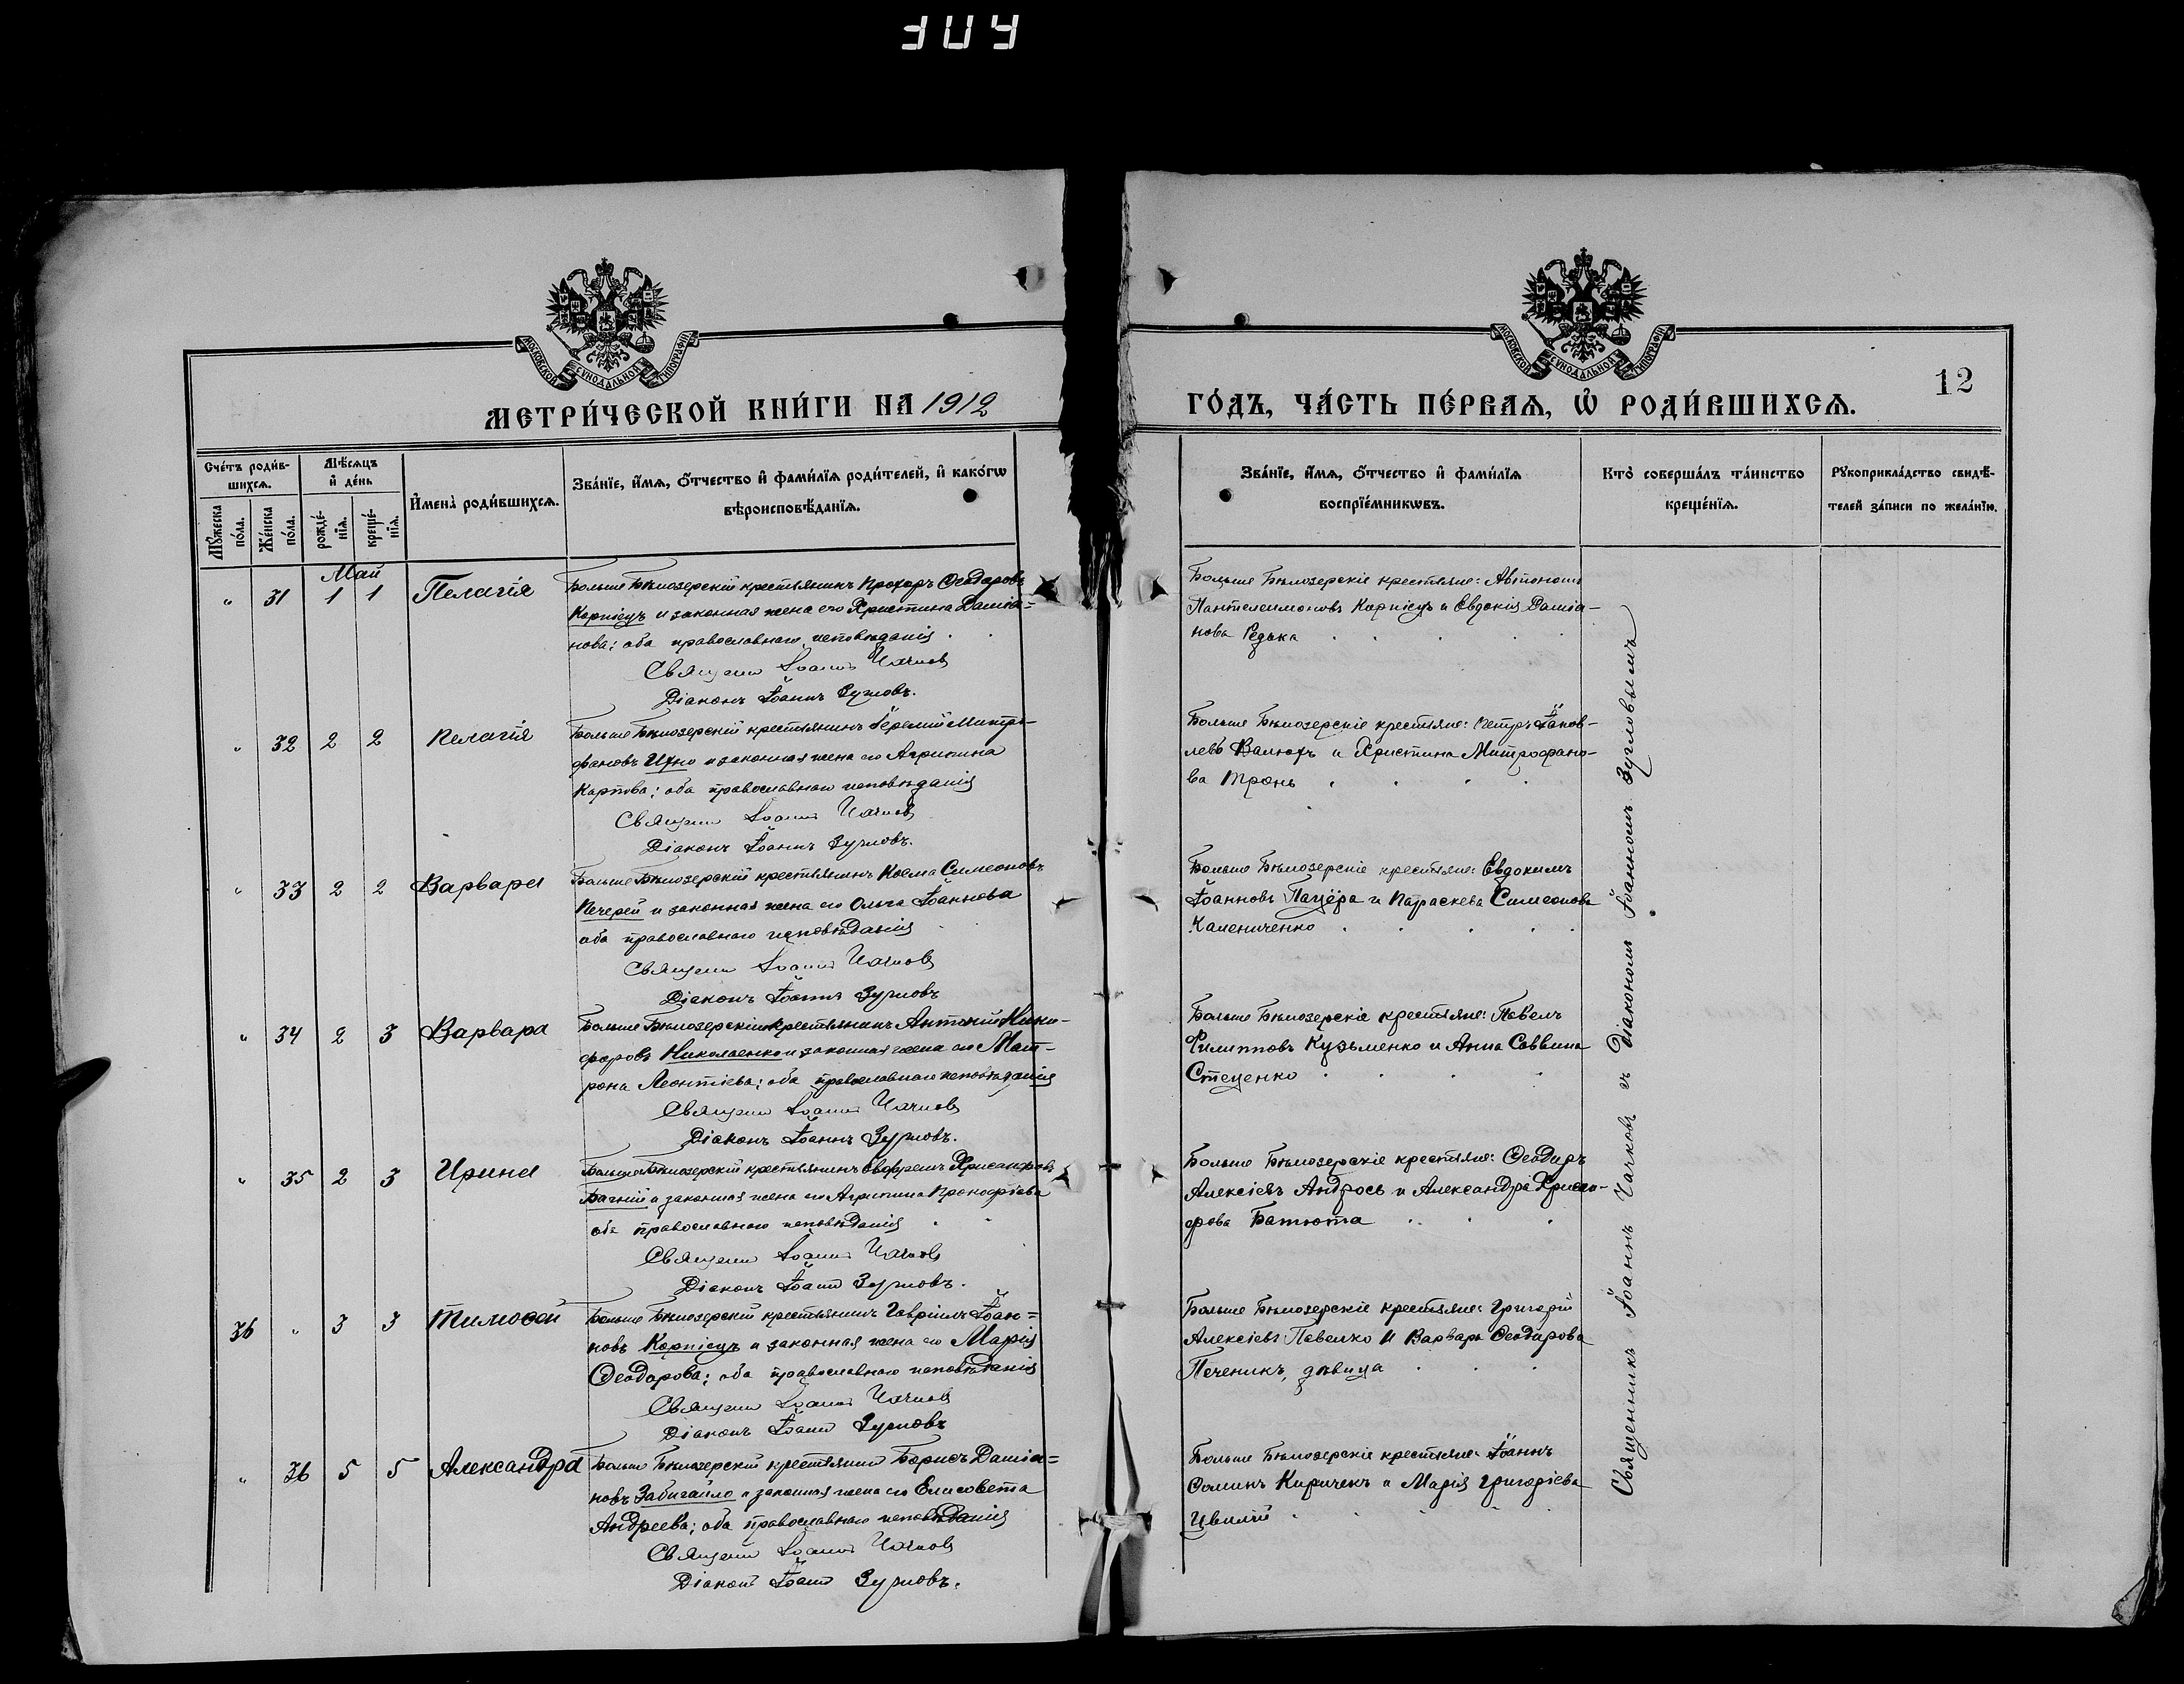 304
МОСКОВСКОЙ СУНОДАЛЬНОЙ ТИПОГРАФІИ
МОСКОВСКОЙ СУНОДАЛЬНОЙ ТИПОГРАФІИ
12
МЕТРИ́ЧЕСКОЙ КНИ́ГИ НА 1912
ГО́ДЪ, ЧА́СТЬ ПЕ́РВАѦ, Ѡ҆ РОДИ́ВШИХСѦ.
Сче́тъ роди́в-
шихсѧ.
Мѣ́сѧцъ
и҆ де́нь
И҆мена̀ роди́вшихсѧ.
Зва́нїе, и҆́мѧ, ѻ҆́тчество и҆ фами́лїѧ роди́телей, и҆ како́гѡ
вѣроисповѣ́данїѧ.
Мꙋ́жеска
по́ла.
Же́нска
по́ла.
рожде́-
нїѧ.
креще́-
нїѧ.
Зва́нїе, и҆́мѧ, ѻ҆́тчество и҆ фами́лїѧ
воспрїе́мникѡвъ.
Кто̀ соверша́лъ та́инство
креще́нїѧ.
Рꙋкоприкла́дство свидѣ́-
телей за́писи по жела́нїю.
Май
" 31 1 1 Пелагія
Больше Бѣлозерскій крестьянинъ Прохоръ Ѳеодоровъ
Корніецъ и законная жена его Христина Даміа=
нова; оба православнаго исповѣданія
Священн Іоаннъ Чачковъ
Діаконъ Іоаннъ Зугловъ.
Больше Бѣлозерскіе крестьяне: Автономъ
Пантелеимоновъ Корніецъ и Евдокія Даміа-
нова Редька
" 32 2 2 Пелагія
Больше Бѣлозерскій крестьянинъ Іеремій Митро-
фановъ Ихно и законная жена его Агрипина
Карпова; оба православнаго исповѣданія
Священн Іоаннъ Чачковъ
Діаконъ Іоаннъ Зугловъ.
Больше Бѣлозерскіе крестьяне: Петръ Іаков-
левъ Валюхъ и Христина Митрофано-
ва Тронь
" 33 2 2 Варвара
Больше Бѣлозерскій крестьянинъ Косма Симеоновъ
Печерей и законная жена его Ольга Іоаннова
оба православнаго исповѣданія
Священн Іоаннъ Чачковъ
Діаконъ Іоаннъ Зугловъ
Больше Бѣлозерскіе крестьяне: Евдокимъ
Іоанновъ Пацёра и Параскева Симеонова
Каменченко
" 34 2 3 Варвара
Больше Бѣлозерскій крестьянинъ Антоній Ники-
форовъ Николаенко и законная жена его Мат-
рона Леонтіева; оба православнаго исповѣданія
Священн Іоаннъ Чачковъ
Діаконъ Іоаннъ Зугловъ.
Больше Бѣлозерскіе крестьяне: Павелъ
Филипповъ Кузьменко и Анна Саввина
Стеценко
" 35 2 3 Ирина
Больше Бѣлозерскій крестьянинъ Евфремъ Хрисанфовъ
Бачкій и законная жена его Агрипина Прокофіева
оба православнаго исповѣданія
Священн Іоаннъ Чачковъ
Діаконъ Іоаннъ Зугловъ.
Больше Бѣлозерскіе крестьяне: Ѳеодоръ
Алексіевъ Андрось и Александра Хрисан-
фова Батюта
36 " 3 3 Тимоѳей
Больше Бѣлозерскій крестьянинъ Гавріилъ Іоан=
новъ Корніецъ и законная жена его Марія
Ѳеодорова; оба православнаго исповѣданія
Священн Іоаннъ Чачковъ
Діаконъ Іоаннъ Зугловъ
Больше Бѣлозерскіе крестьяне: Григорій
Алексіевъ Павелко и Варвара Ѳеодорова
Печеникъ, дѣвица
" 36 5 5 Александра
Больше Бѣлозерскій крестьянинъ Борисъ Даміа=
новъ Забигайло и законная жена его Елисавета
Андреева; оба православнаго исповѣданія
Священн Іоаннъ Чачковъ
Діаконъ Іоаннъ Зугловъ.
Больше Бѣлозерскіе крестьяне: Іоаннъ
Ѳоминъ Киричекъ и Марія Григоріева
Цвилій
Священникъ Іоаннъ Чачковъ съ Діакономъ Іоанномъ Зугловымъ